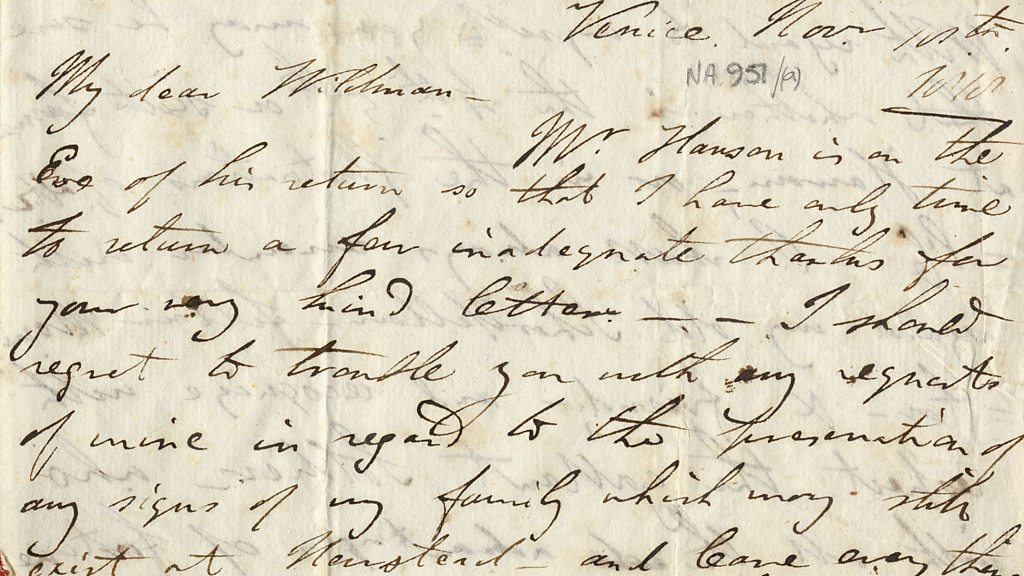 Venice. Novr 18th.
1818
NA 951/(a)
My dear Wildman –
Mr. Hanson is on the
Eve of his return so that I have only time
to return a few inadequate thanks for
your very kind letter. – – – I should
regret to trouble you with any requests
of mine in regard to the preservation of
any signs of my family which may still
exist at Newstead – and leave every thing